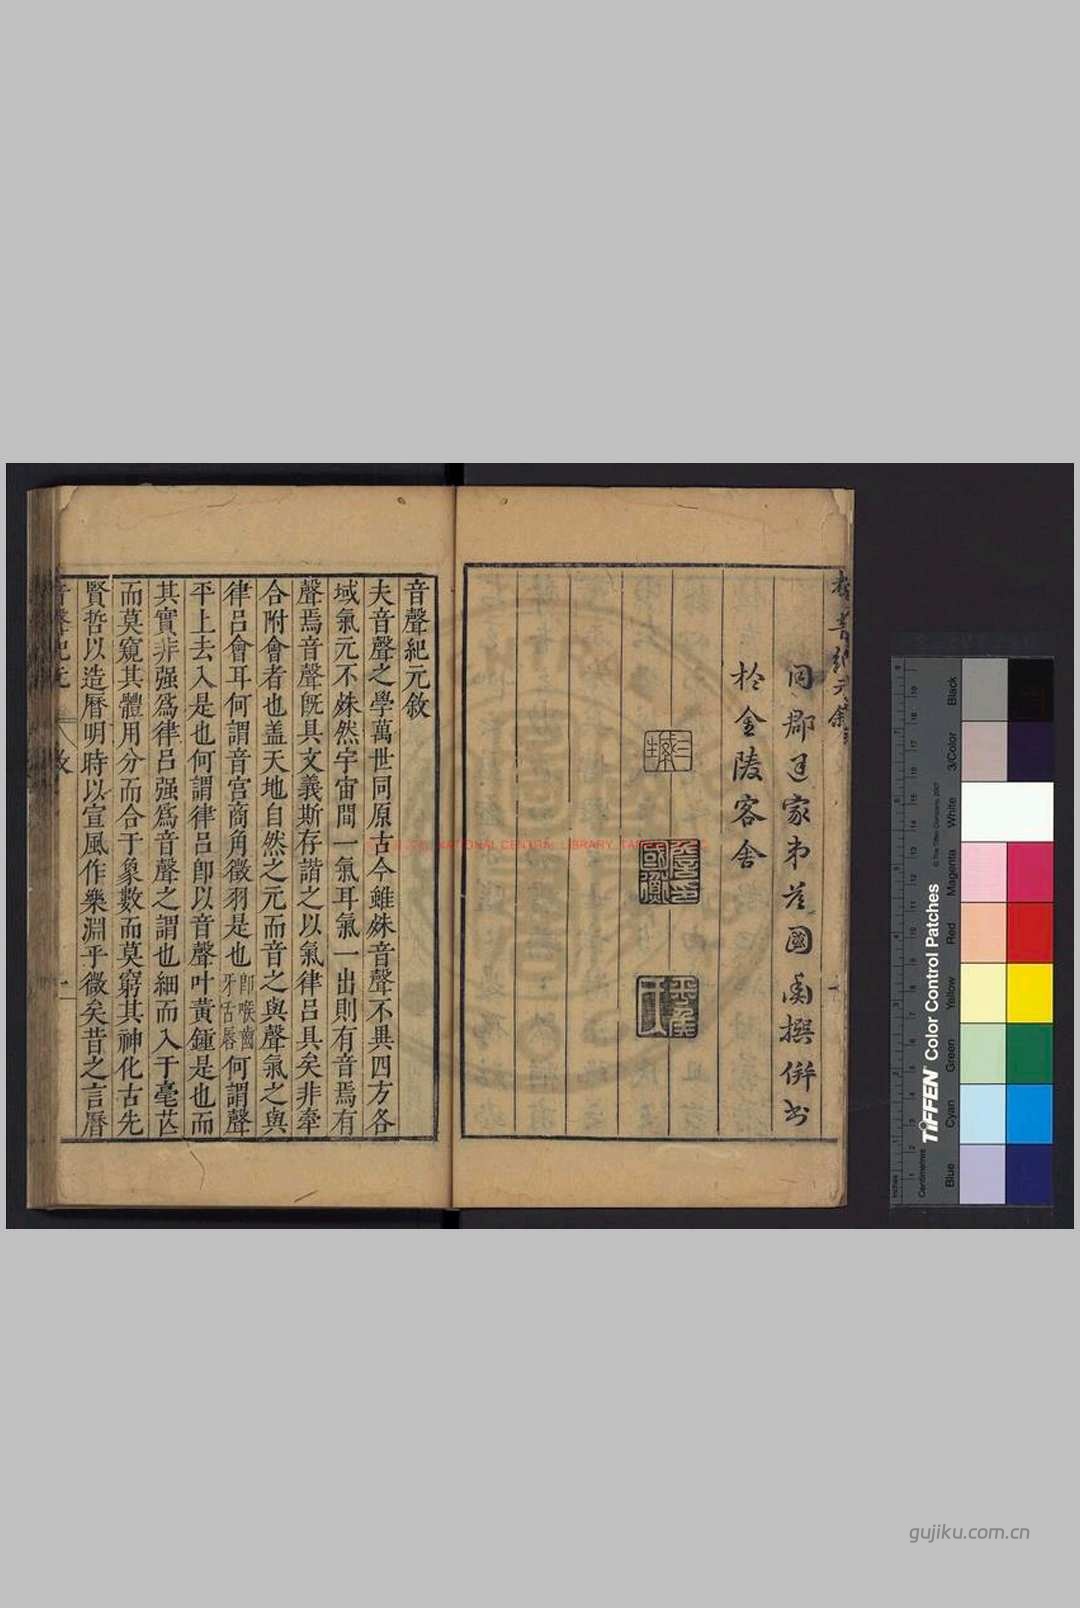 同郡通家弟范國禺撰併書
於金陵客舍
音聲紀元敘
夫音聲之學萬世同原古今雖殊音聲不異四方各
域氣元不殊然宇宙間一氣耳氣一出則有音焉有
聲焉音聲旣具文義斯存諧之以氣律呂具矣非牽
合附會者也盖天地自然之元而音之與聲氣之與
律呂會耳何謂音宮商角徵羽是也即喉齒牙舌唇何謂聲
平上去入是也何謂律呂卽以音聲叶黃鍾是也而
其實非强爲律呂强爲音聲之謂也細而入于毫芒
而莫窺其體用分而合于象數而莫窮其神化古先
賢哲以造曆明時以宣風作樂淵乎微矣昔之言曆
音聲紀元 敘 一
NATIONAL CENTRAL LIBRARY
TIFFEN Color Control Patches
© The Tiffen Company, 2007
Centimetres
Inches
Blue
Cyan
Green
Yellow
Red
Magenta
White
3/Color
Black
gujiku.com.cn